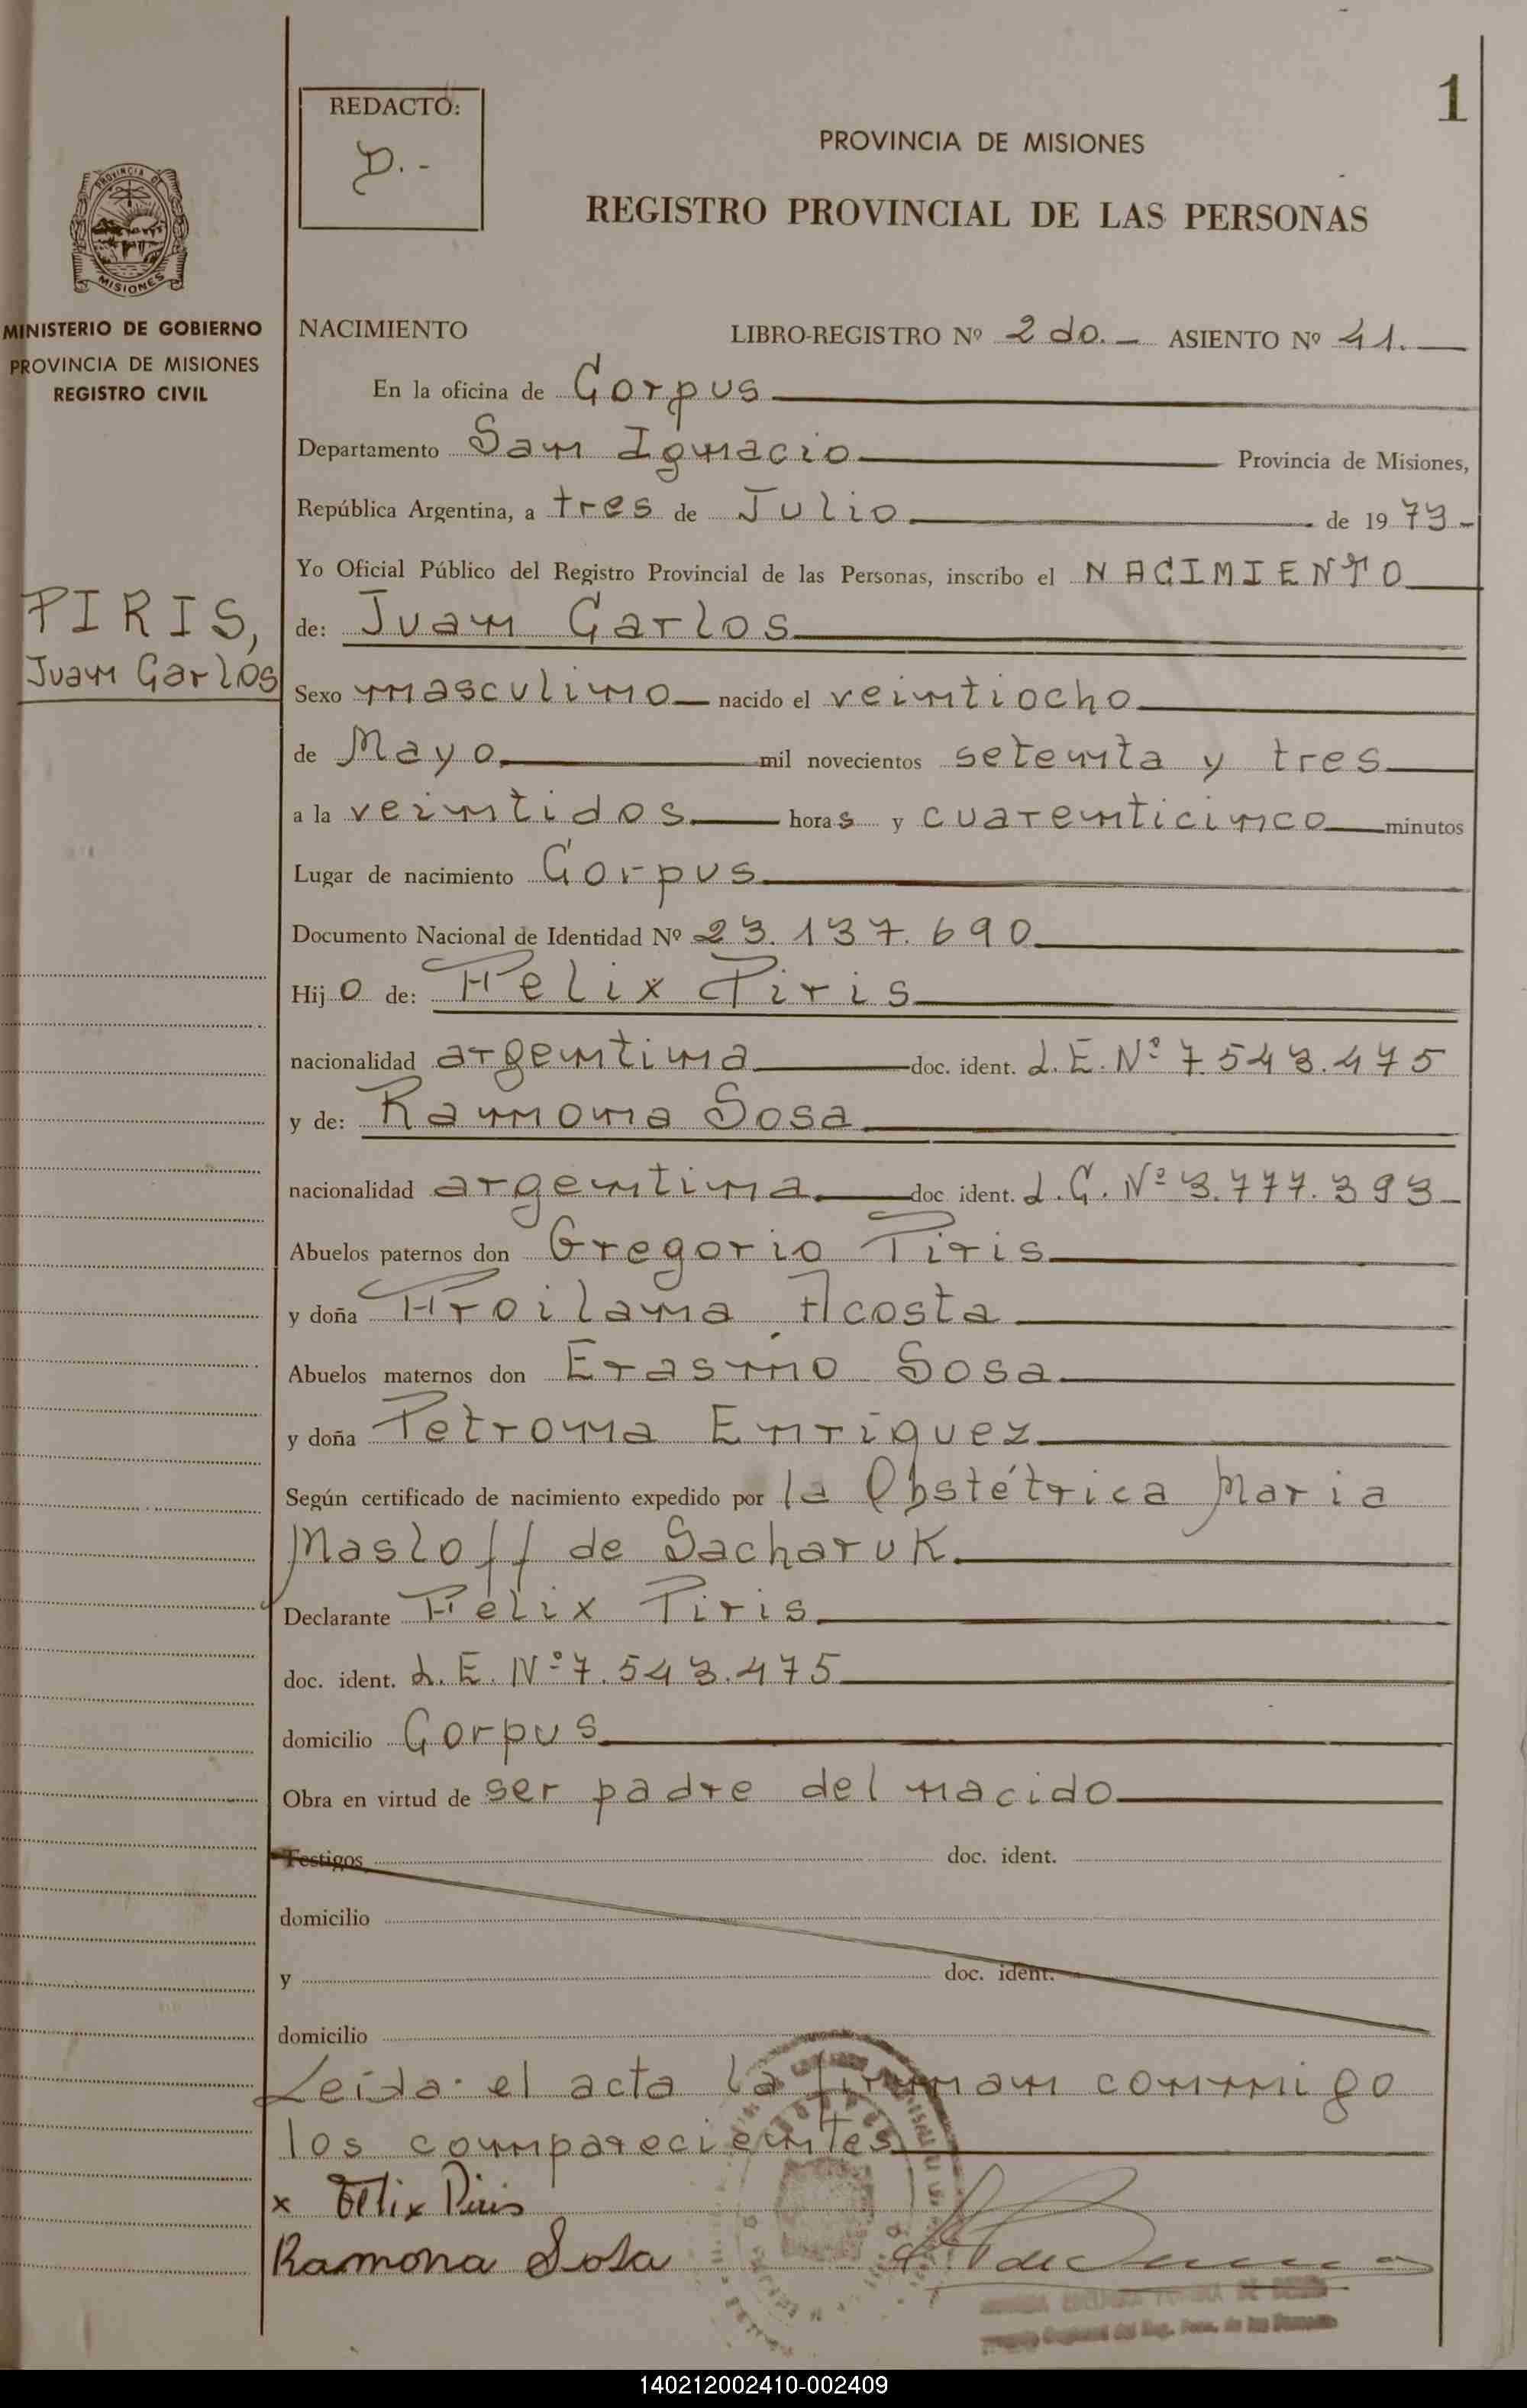 1
REDACTO:
PROVINCIA DE MISIONES
REGISTRO PROVINCIAL DE LAS PERSONAS
PROVINCIA DE
MISIONES
MINISTERIO DE GOBIERNO
PROVINCIA DE MISIONES
REGISTRO CIVIL
PIRIS,
Juan Carlos
NACIMIENTO LIBRO-REGISTRO Nº 2do.- ASIENTO Nº 41.
En la oficina de Corpus
Departamento San Ignacio Provincia de Misiones,
República Argentina, a tres de Julio de 1973-
Yo Oficial Público del Registro Provincial de las Personas, inscribo el NACIMIENTO
de: Juan Carlos
Sexo masculino nacido el veintiocho
de Mayo mil novecientos setenta y tres
a la veintidos horas y cuarenticinco minutos
Lugar de nacimiento Corpus
Documento Nacional de Identidad Nº 23.137.690
Hijo de: Felix Piris
nacionalidad argentina doc. ident. L.E. Nº 7.543.475
y de: Ramona Sosa
nacionalidad argentina doc ident. L.C. Nº 3.777.393
Abuelos paternos don Gregorio Piris
y doña Froilana Acosta
Abuelos maternos don Erasmo Sosa
y doña Petrona Enriquez
Según certificado de nacimiento expedido por la Obstétrica Maria
Masloff de Sacharuk.
Declarante Felix Piris
doc. ident. L.E. Nº 7.543.475
domicilio Corpus
Obra en virtud de ser padre del nacido
Testigos doc. ident.
domicilio
y doc. ident.
domicilio
Leida el acta la firman conmigo
los comparecientes
x Felix Piris
Ramona Sosa
140212002410-002409